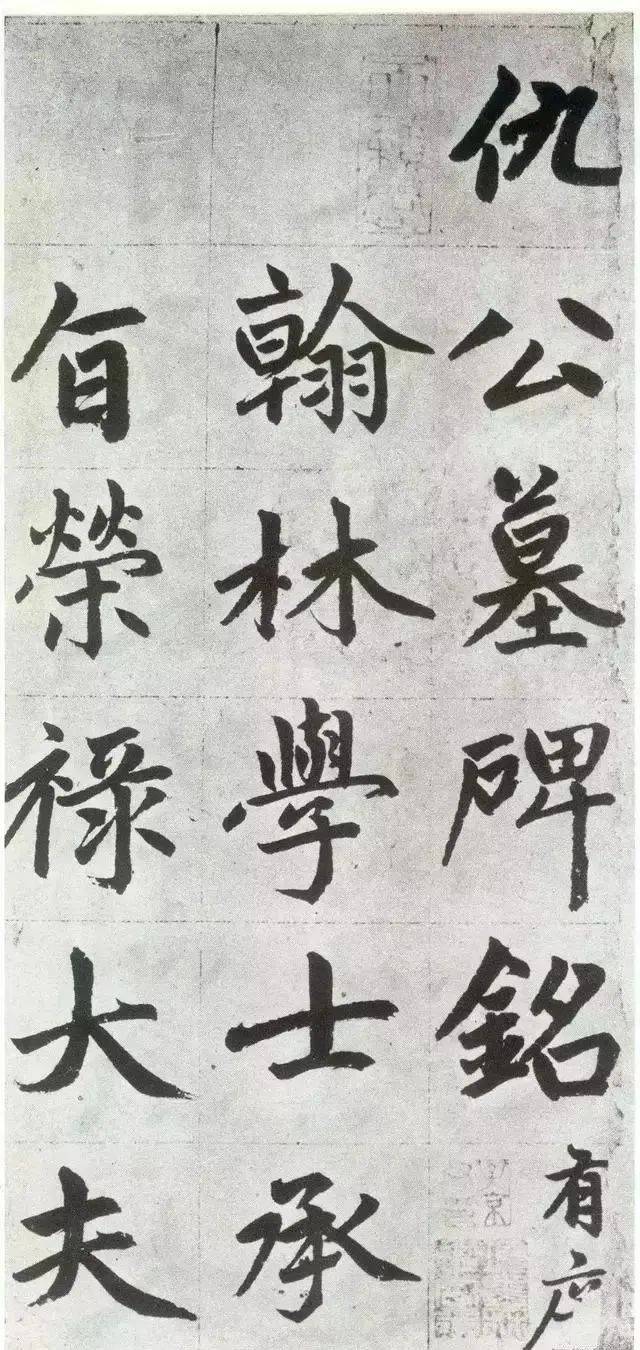 仇公墓碑銘有序
翰林學士承
旨榮祿大夫